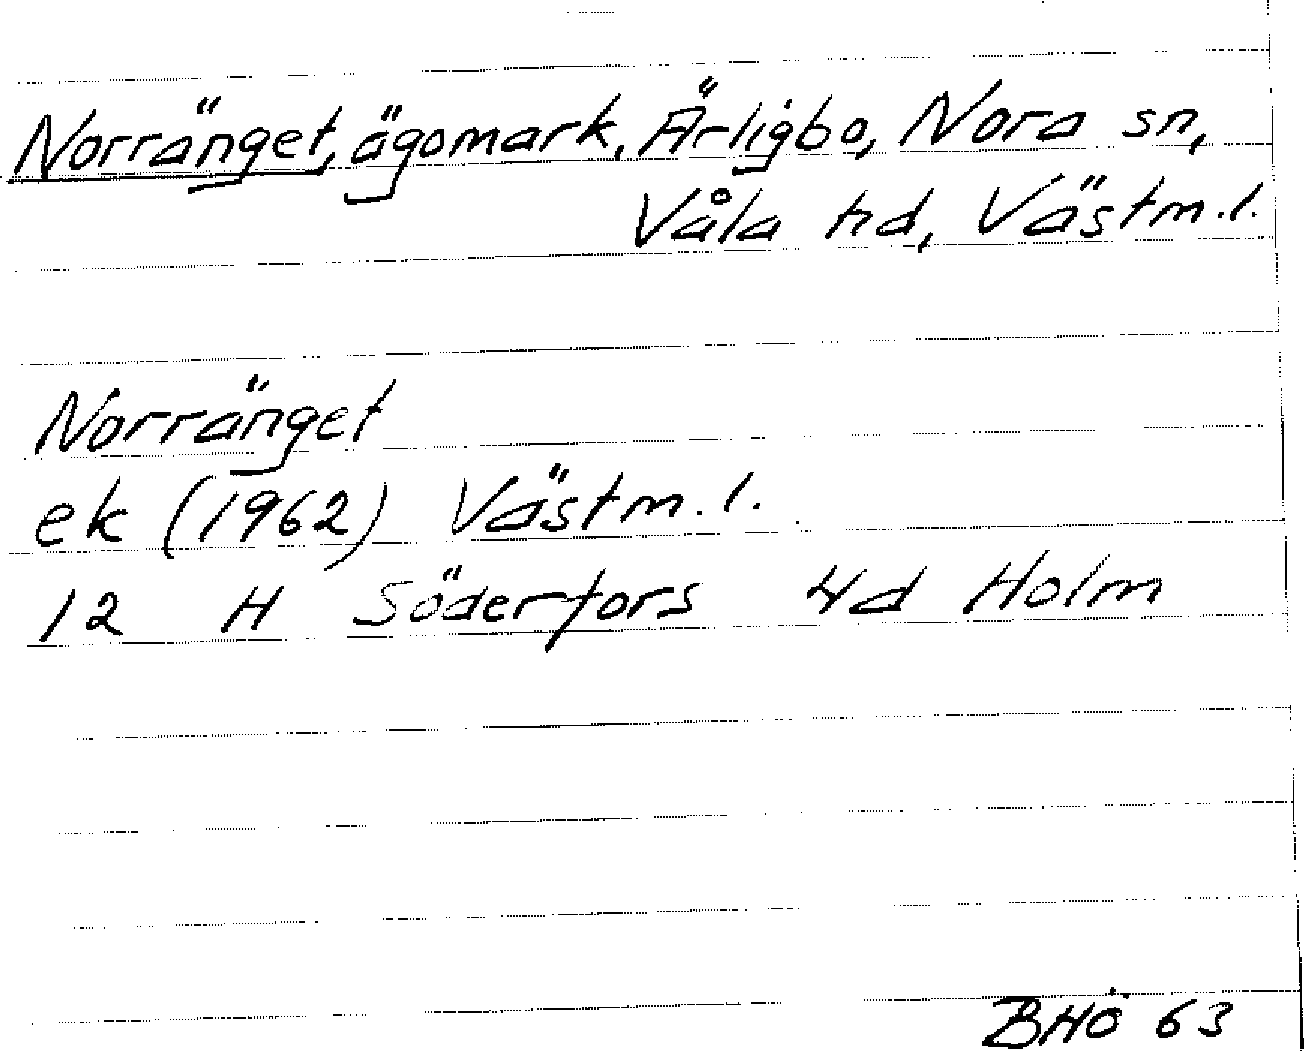 Norränget, ägomark, Ärligbo, Nora sn,
Våla hd, Västm. l.
Norränget
ek (1962) Västm. l.
12 H Söderfors Hd Holm
BHÖ 63